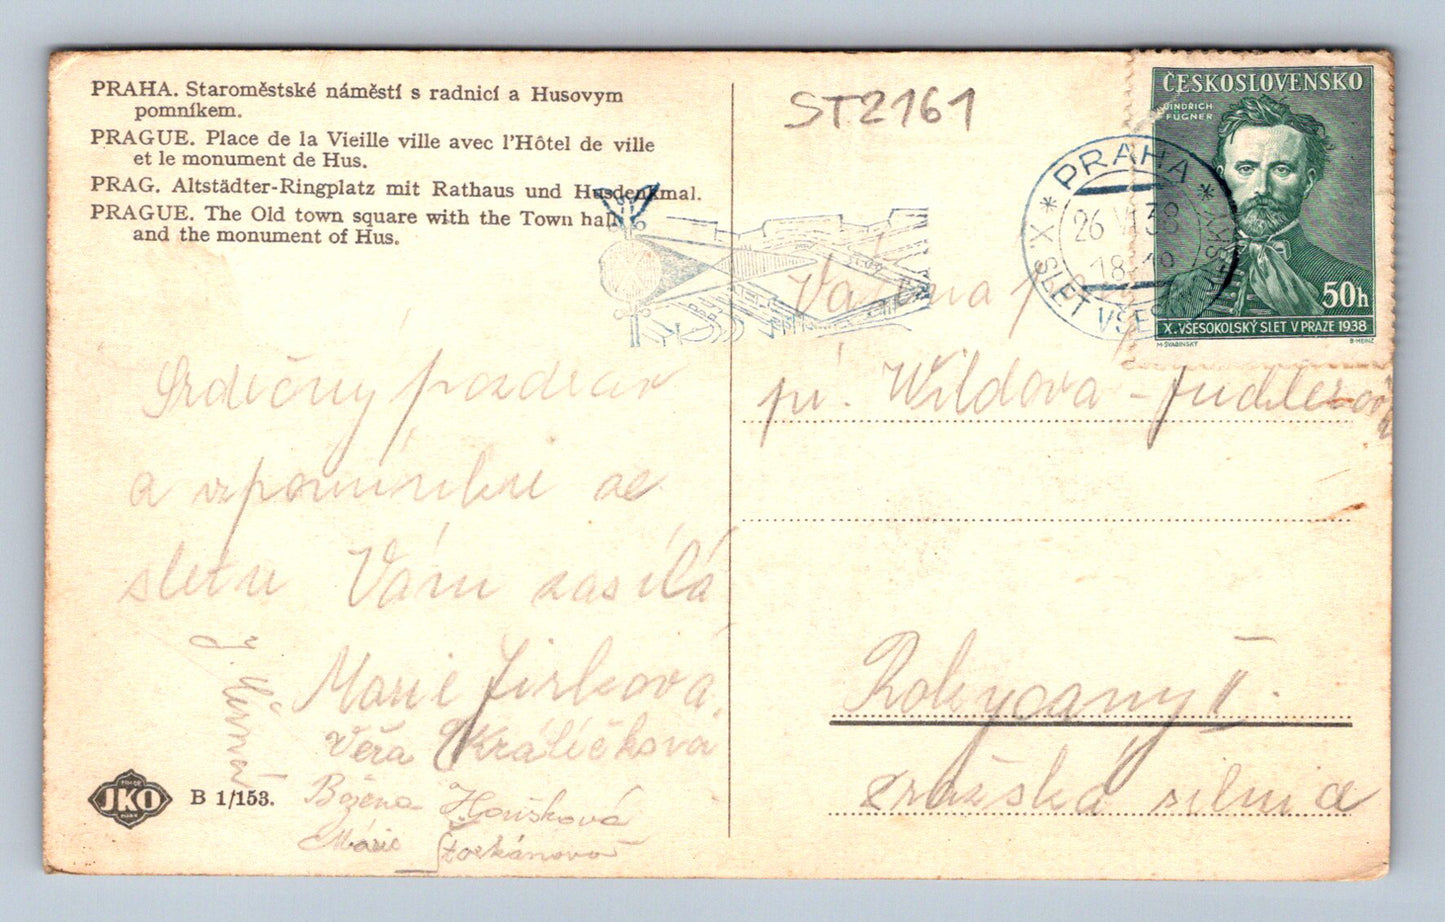 PRAHA. Staroměstské náměstí s radnicí a Husovym
pomníkem.
PRAGUE. Place de la Vieille ville avec l'Hôtel de ville
et le monument de Hus.
PRAG. Altstädter-Ringplatz mit Rathaus und Husdenkmal.
PRAGUE. The Old town square with the Town hall
and the monument of Hus.
ST2161
ČESKOSLOVENSKO
JINDRICH
FÜGNER
50h
X. VŠESOKOLSKÝ SLET V PRAZE 1938
M. ŠVABINSKÝ
B. HEINZ
* PRAHA *
26 VI 38
18
X. SLET VŠESOK
Srdečný pozdrav
a vzpomínku ze
sletu Vám zasílá
Marie Jirková
Věra Králíčková
Božena Houšková
Marie
Vážená
pí. Wildova -
Rokycany II.
Pražská silnice
JKO
B 1/153.